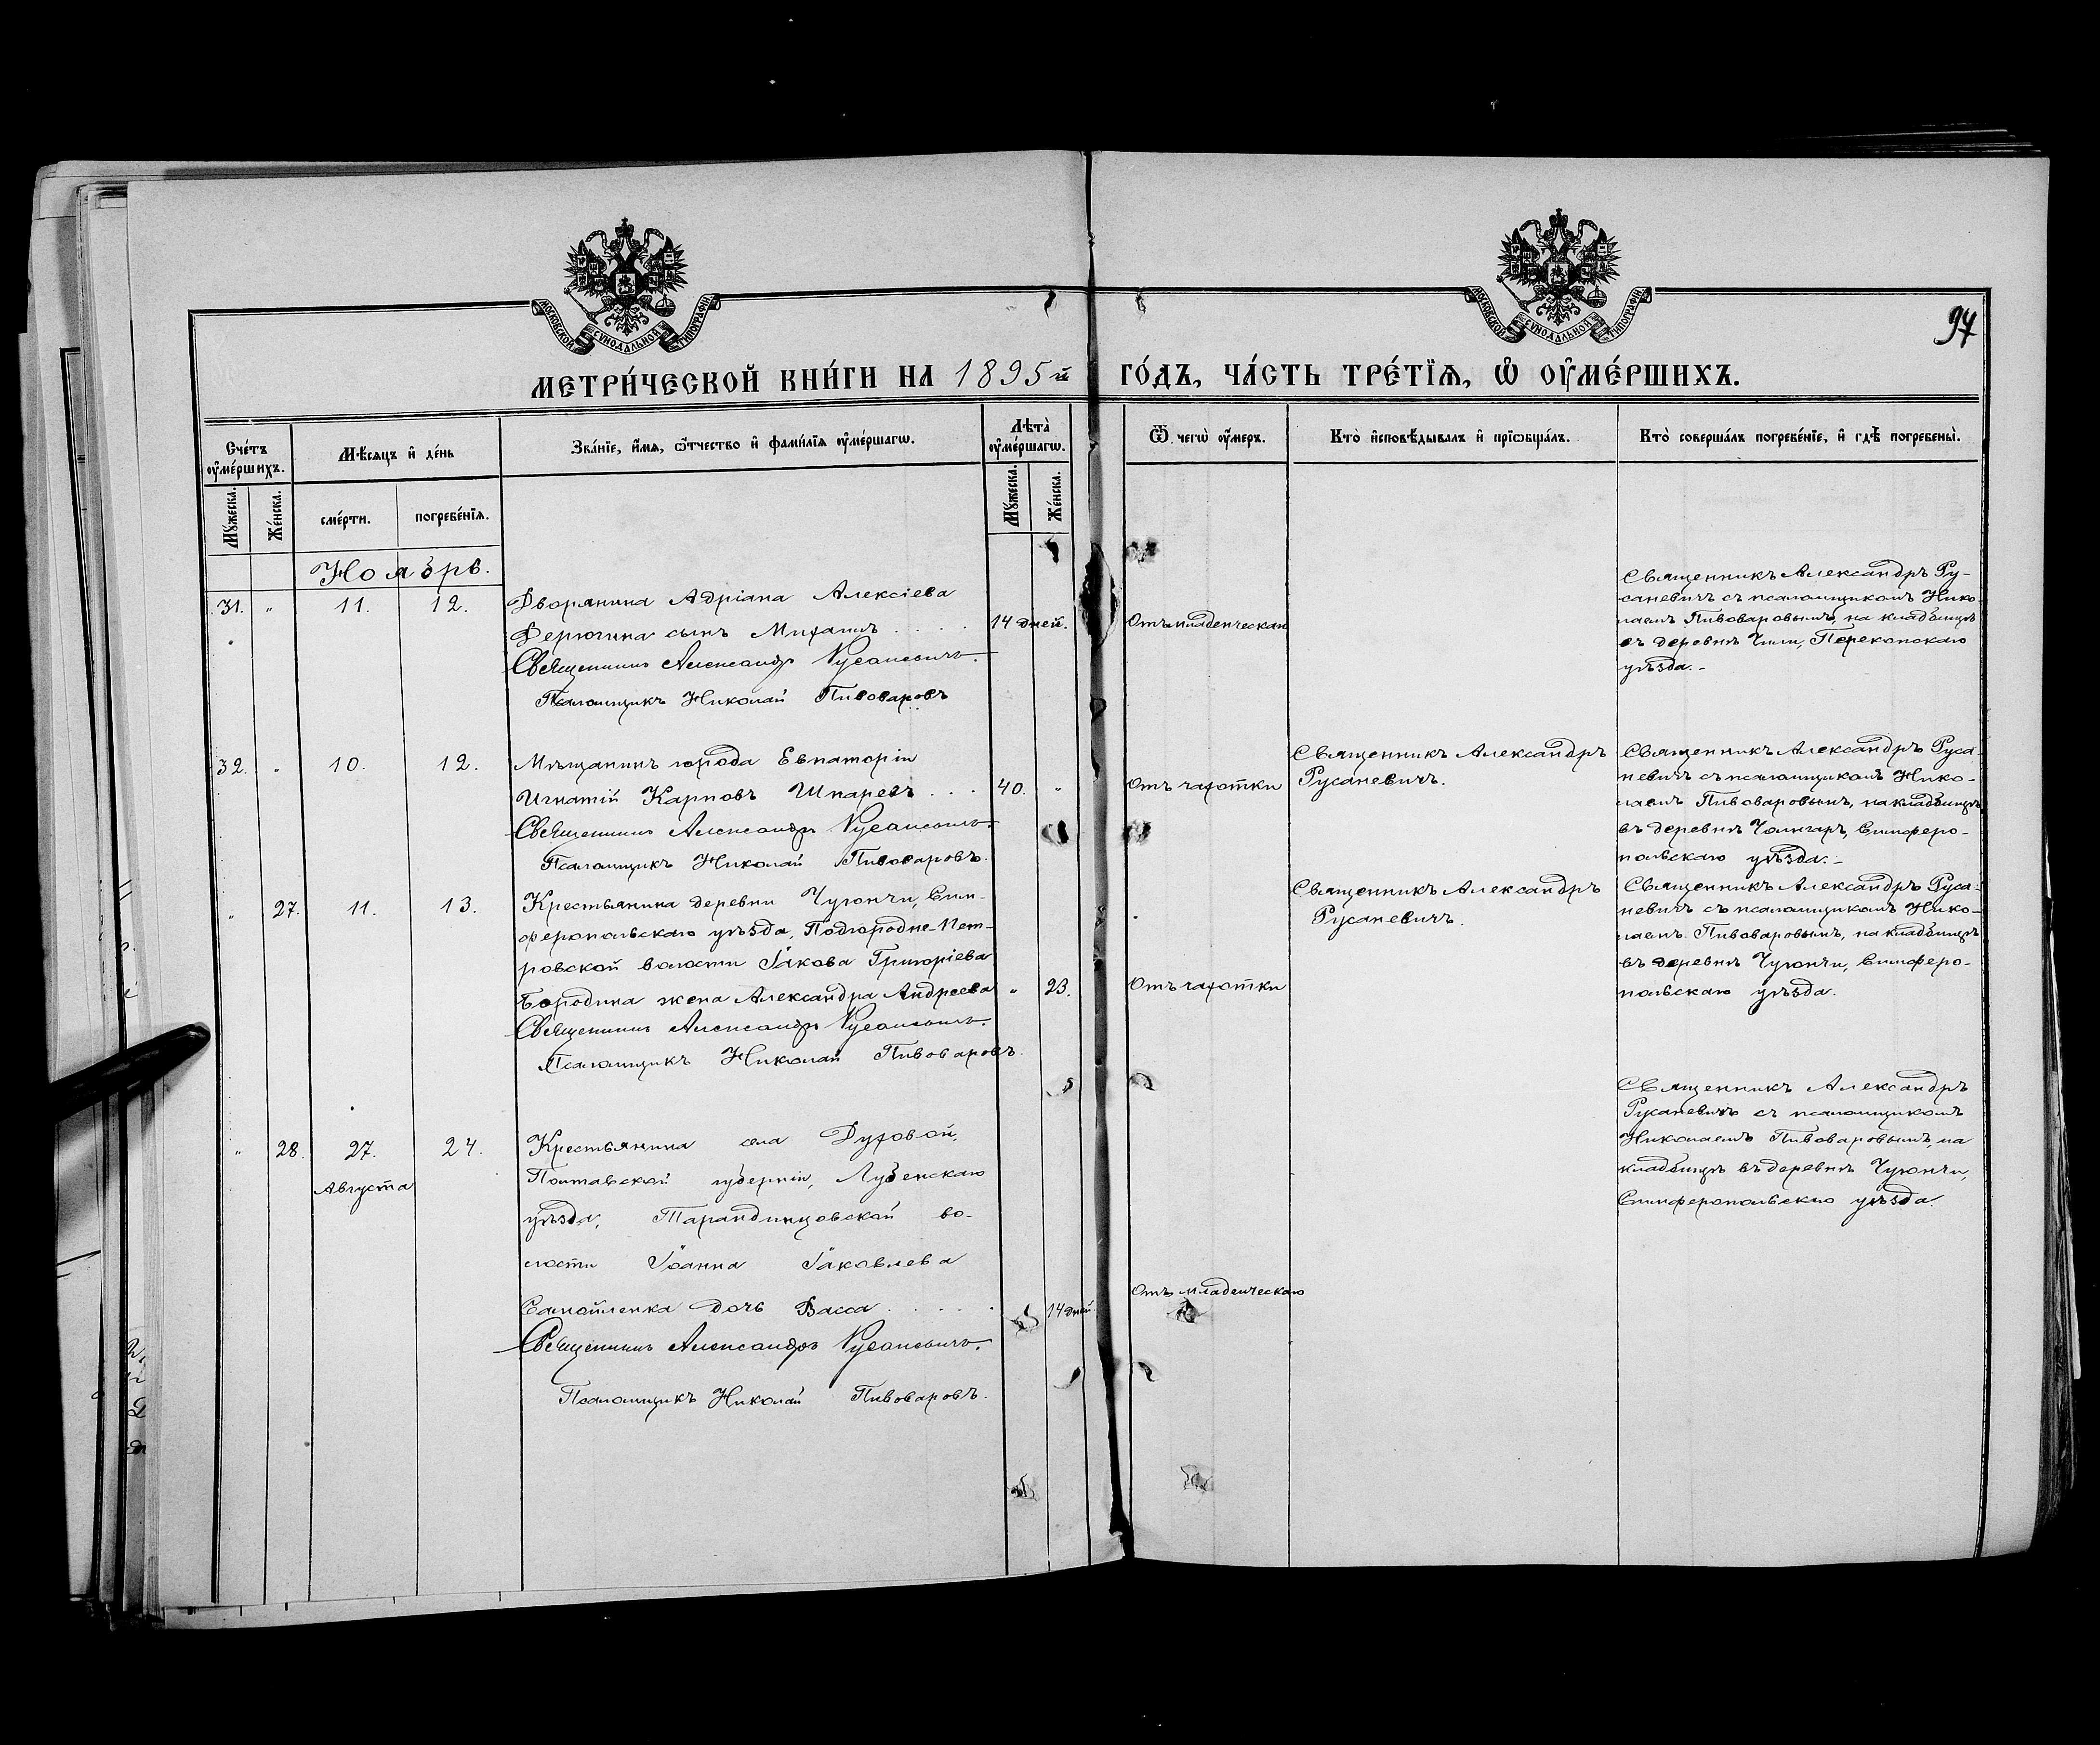 МОСКОВСКОЙ СУНОДАЛЬНОЙ ТИПОГРАФІИ
МОСКОВСКОЙ СУНОДАЛЬНОЙ ТИПОГРАФІИ
97
МЕТРИ́ЧЕСКОЙ КНИ́ГИ НА 1895й ГО́ДЪ, ЧА́СТЬ ТРЕ́ТЇѦ, Ѡ ОУМЕ́РШИХЪ.
Сче́тъ оуме́ршихъ.
Мѣ́сяцъ и де́нь
Зва́нїе, и́мя, ѿтчество и фами́лїя оуме́ршагѡ.
Лѣта̀ оуме́ршагѡ.
Ѿ чегѡ̀ оу́меръ.
Кто̀ исповѣ́дывалъ и прїѡбща́лъ.
Кто̀ соверша́лъ погребе́нїе, и гдѣ̀ погребены̀.
Му́жеска.
Же́нска.
сме́рти.
погребе́нїя.
Му́жеска.
Же́нска.
Ноябрь.
31. " 11. 12.
Дворянина Адріана Алексіева
Ферюгина сынъ Михаилъ . . . .
14 дней.
Отъ младенческаго
Священникъ Александръ Русаневичъ.
Псаломщикъ Николай Пивоваровъ
Священникъ Александръ Ру-
саневичъ съ псаломщикомъ Нико-
лаемъ Пивоваровымъ, на кладбищѣ
въ деревнѣ Чили, Перекопскаго
уѣзда.-
32. " 10. 12.
Мѣщанинъ города Евпаторіи
Игнатій Карповъ Шпаревъ . . .
40. "
Отъ чахотки
Священникъ Александръ Русаневичъ.
Псаломщикъ Николай Пивоваровъ.
Священникъ Александръ
Русаневичъ.
Священникъ Александръ Руса-
невичъ съ псаломщикомъ Нико-
лаемъ Пивоваровымъ, на кладбищѣ
въ деревнѣ Чонгаръ, Симферо-
польскаго уѣзда.-
" 27. 11. 13.
Крестьянина деревни Чуюнчи, Сим-
феропольскаго уѣзда, Подгородне-Пет-
ровской волости Іакова Григоріева
Бородина жена Александра Андреева
" 23.
Отъ чахотки
Священникъ Александръ Русаневичъ.
Псаломщикъ Николай Пивоваровъ.
Священникъ Александръ
Русаневичъ.
Священникъ Александръ Руса-
невичъ съ псаломщикомъ Нико-
лаемъ Пивоваровымъ, на кладбищѣ
въ деревнѣ Чуюнчи, Симферо-
польскаго уѣзда.
" 28. 27. 24.
Августа
Крестьянина села Духовой,
Полтавской губерніи, Лубенскаго
уѣзда, Тарандинцовской во-
лости Іоанна Іаковлева
Самойленка дочь Васса . . . . .
14 дней.
Отъ младенческаго
Священникъ Александръ Русаневичъ.
Псаломщикъ Николай Пивоваровъ.
Священникъ Александръ
Русаневичъ съ псаломщикомъ
Николаемъ Пивоваровымъ, на
кладбищѣ въ деревнѣ Чуюнчи,
Симферопольскаго уѣзда.